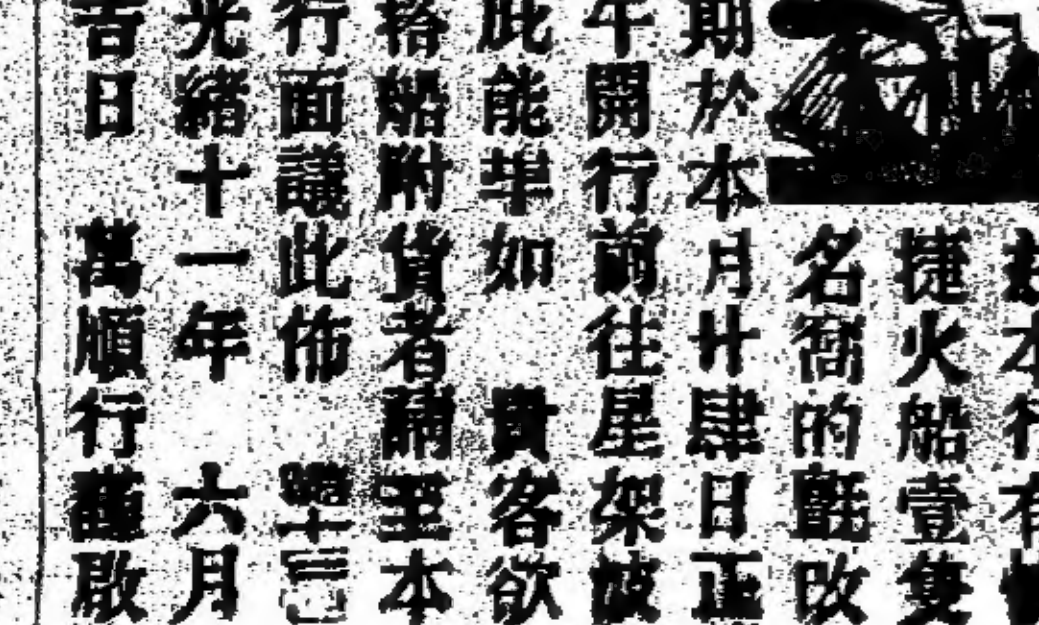 本行有
捷火船壹隻
名喬的既改
期於本月廿肆日正
午開行前往星架波
此能埠如 貴客欲
搭船附貨者請至本
行面議此佈
光緒十一年 六月
吉日 萬順行謹啟